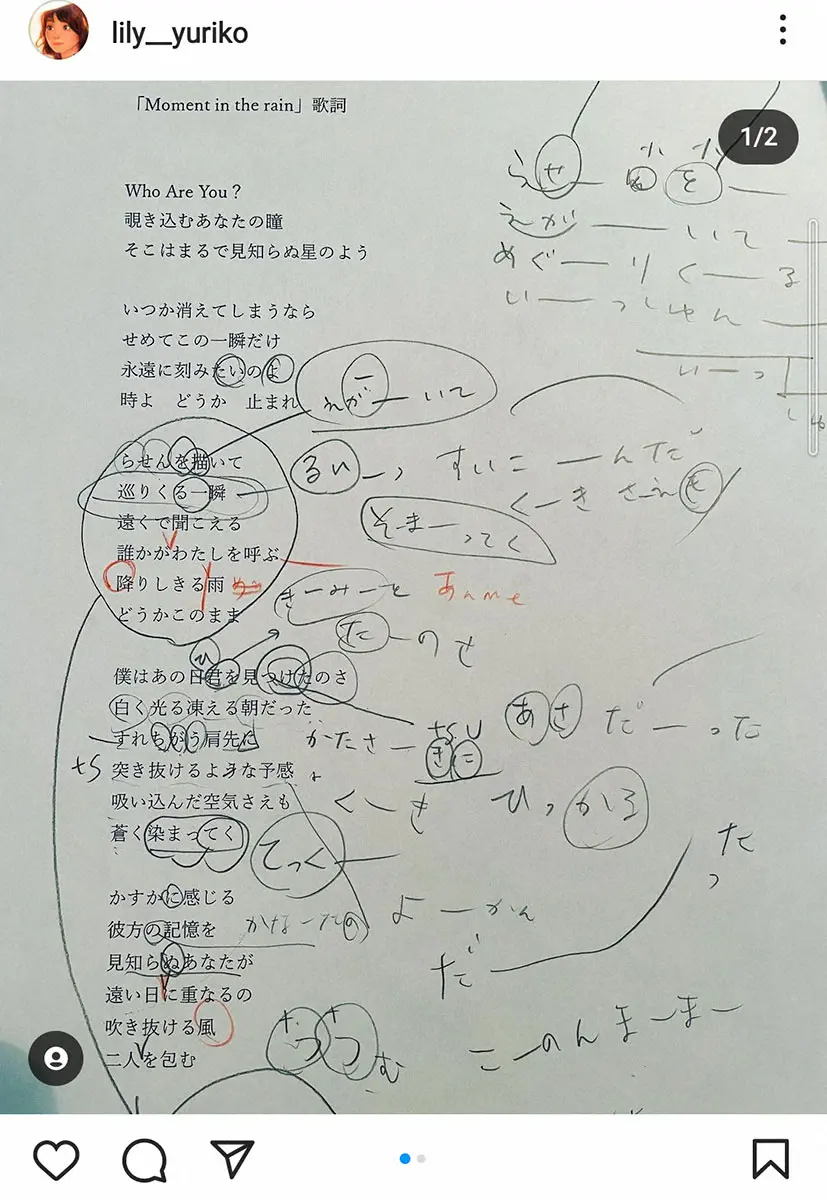 lily__yuriko
1/2
「Moment in the rain」歌詞
Who Are You？
覗き込むあなたの瞳
そこはまるで見知らぬ星のよう
いつか消えてしまうなら
せめてこの一瞬だけ
永遠に刻みたいのよ
時よ　どうか　止まれ
らせんを描いて
巡りくる一瞬
遠くで聞こえる
誰かがわたしを呼ぶ
降りしきる雨
どうかこのまま
僕はあの日君を見つけたのさ
白く光る凍える朝だった
すれちがう肩先に
突き抜けるような予感
吸い込んだ空気さえも
蒼く染まってく
かすかに感じる
彼方の記憶を
見知らぬあなたが
遠い日に重なるの
吹き抜ける風
二人を包む
らせー
を
えがーいて
めぐーりくーる
いーっしゅん
いーっ
えがーいて
るいーっ
すいこーんだ
くーきさえも
そまーってく
きーみーと
あんme
たーのさ
ひ
かたさーきに
tsu
あさだーった
ts
くーも
ひっかる
てっく
よーかん
かなーたの
だーった
つつむ
こーのんまーまー